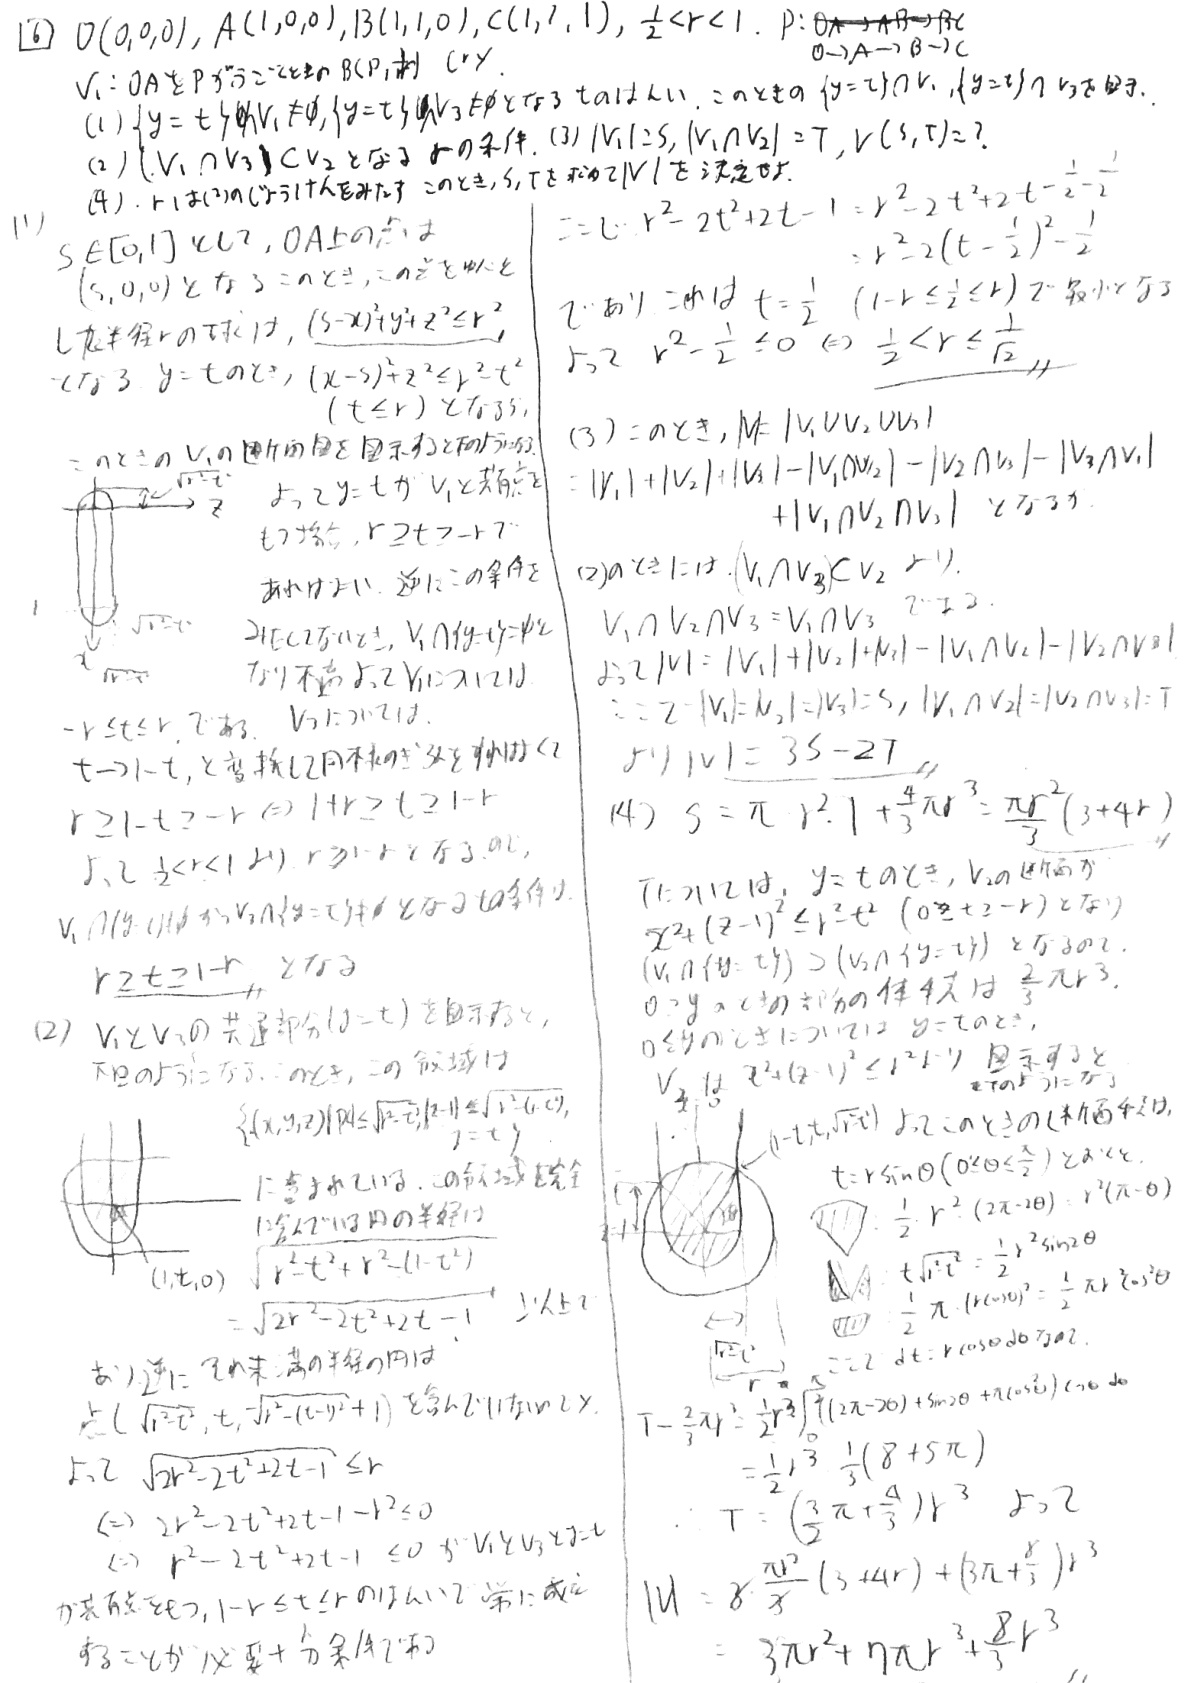 [6] O(0,0,0), A(1,0,0), B(1,1,0), C(1,1,1), 1/2<r<1. P:
O→A→B→C
V₁: OAをPがうごくときの B(P, r)
(1) {y=t}∩V₁≠∅, {y=t}∩V₃≠∅となるtのはんい. このときの{y=t}∩V₁, {y=t}∩V₃を図示.
(2) (V₁∩V₃)⊂V₂となるrの条件. (3) |V₁|=S, |V₁∩V₂|=T, V(S,T)=?
(4). rは(2)のじょうけんをみたす このとき, S, Tを求めて|V|を決定せよ.
(1)
S∈[0,1]として, OA上の点は
(s,0,0)となる このとき, この点を中心と
した半径rの球は, (s-x)²+y²+z²≤r²,
となる y=tのとき, (x-s)²+z²≤r²-t²
(t≤r)となるから,
このときのV₁の断面図を図示すると下のようになる
√r²-t²
z
x
よって y=tが V₁と共有点を
もつ場合, r≥t≥-rで
あればよい. 逆にこの条件を
みたしてないとき, V₁∩{y=t}=∅と
なり不適 よってV₁については
-r≤t≤r, である. V₃については.
t→1-t, と変換して
r≥1-t≥-r ⇔ 1+r≥t≥1-r
よって 1/2<r<1より, となるので,
となるtの条件は,
r≥t≥1-r となる
(2) V₁とV₃の共通部分(y=t)を図示すると,
下図のようになる. このとき, この領域は
{(x,y,z)| ≤√r²-t², |z-1|≤√r²-(1-t)²,
y=t}
に含まれている. この領域を完全
に含んでいる円の半径は
(1,t,0)
√r²-t²+r²-(1-t²)
=√2r²-2t²+2t-1 以上で
あり, 逆に それ未満の半径の円は
点(√r²-t², t, -√r²-(t-1)²+1)を含んでいない
よって √2r²-2t²+2t-1 ≤r
⇔ 2r²-2t²+2t-1-r²≤0
⇔ r²-2t²+2t-1 ≤0 が V₁とV₃とy=t
が共有点をもつ, 1-r≤t≤rのはんいで常に成立
することが必要十分条件である
ここで r²-2t²+2t-1 = r²-2t²+2t-1/2-1/2
=r²-2(t-1/2)²-1/2
であり これは t=1/2 (1-r≤1/2≤r)で最小となる
よって r²-1/2≤0 ⇔ 1/2<r≤1/√2
(3) このとき, |V|=|V₁∪V₂∪V₃|
=|V₁|+|V₂|+|V₃|-|V₁∩V₂|-|V₂∩V₃|-|V₃∩V₁|
+|V₁∩V₂∩V₃| となるが
(2)のときには (V₁∩V₃)⊂V₂ より.
V₁∩V₂∩V₃=V₁∩V₃ である.
よって|V|=|V₁|+|V₂|+|V₃|-|V₁∩V₂|-|V₂∩V₃|
ここで |V₁|=|V₂|=|V₃|=S, |V₁∩V₂|=|V₂∩V₃|=T
より |V|=3S-2T
(4) S=π・r²・1+4/3πr³=πr²/3(3+4r)
Tについては, y=tのとき, V₂の断面が
x²+(z-1)²≤r²-t² (0≥t≥-r)となり
(V₁∩{y=t})⊃(V₂∩{y=t})となるので.
0≥yのときの部分の体積は 2/3πr³.
0≤yのときについては y=tのとき,
V₂は x²+(z-1)²≤r²より 図示すると
下のようになる
(1-t,t,√r²-t²) よってこのときの断面積は,
t=rsinθ(0≤θ≤π/2)とおくと.
: 1/2・r²・(2π-2θ)=r²(π-θ)
: t√r²-t²=1/2r²sin2θ
: 1/2π・(rcosθ)²=1/2πr²cos²θ
√r²-t²
r
ここで dt=rcosθdθなので.
T-2/3πr³=1/2r³∫((2π-2θ)+sin2θ+πcos²θ)cosθdθ
=1/2r³・1/3(8+5π)
∴ T=(3/2π+4/3)r³ よって
|V|=3・πr²/3(3+4r)+(3π+8/3)r³
=3πr²+7πr³+8/3r³